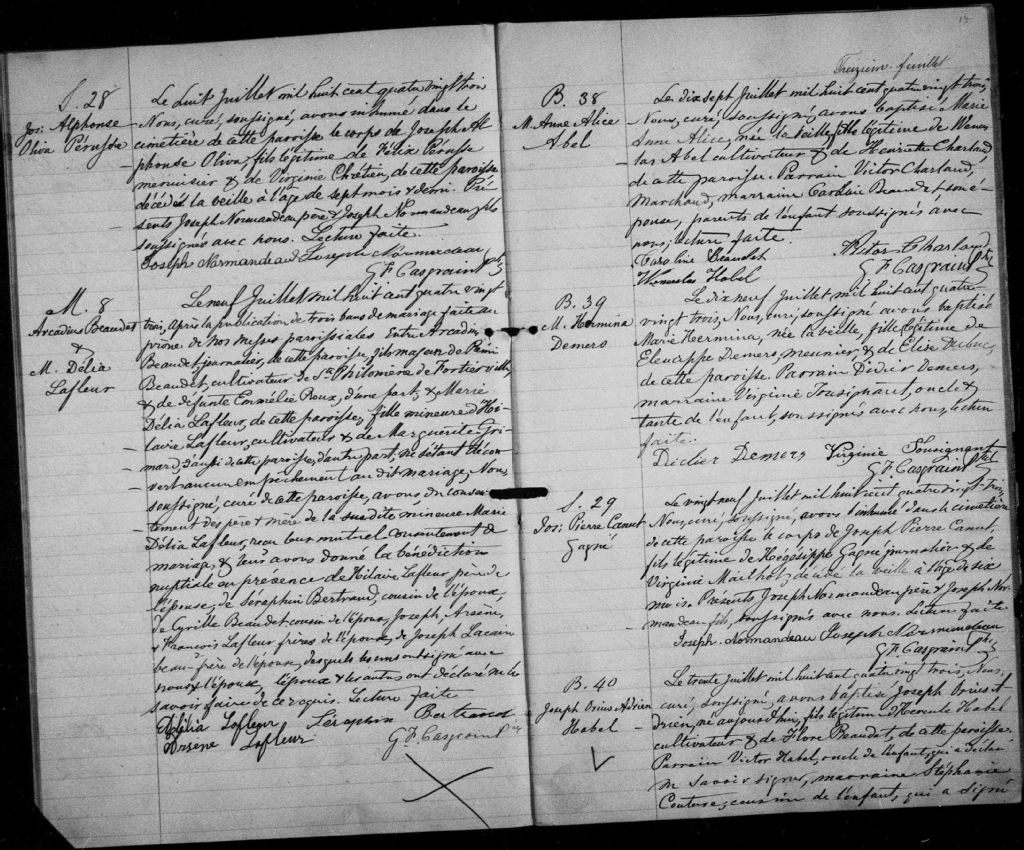 S. 28
Jos: Alphonse
Oliva Perusse
Le huit Juillet mil huit cent quatre vingt trois
Nous, curé, soussigné, avons inhumé dans le
cimetière de cette paroisse le corps de Joseph Al-
phonse Oliva, fils légitime de Félix Perusse
menuisier & de Virginie Chrétien, de cette paroisse,
décédé la veille à l'âge de sept mois & demi. Pré-
sents Joseph Normandeau père & Joseph Normandeau fils
soussignés avec nous. Lecture faite.
Joseph Normandeau Joseph Normandeau
G F Casgrain Ptre
M. 8
Arcadius Beaudet
&
M. Délia
Lafleur
Le neuf Juillet mil huit cent quatre vingt
trois, après la publication de trois bans de mariage faite au
prône de nos messes paroissiales entre Arcadius
Beaudet, journalier, de cette paroisse, fils majeur de Rémi
Beaudet, cultivateur de Ste Philomène de Fortierville,
& de défunte Emmélie Roux, d'une part, & Marie
Délia Lafleur, de cette paroisse, fille mineure d'Hi-
laire Lafleur, cultivateur & de Marguerite Gri-
mard, d'aussi de cette paroisse, d'autre part, ne s'étant décou-
vert aucun empêchement au dit mariage, Nous,
soussigné, curé de cette paroisse, avons du consen-
tement des père & mère de la susdite mineure Marie
Délia Lafleur, reçu leur mutuel consentement de
mariage, & leur avons donné la bénédiction
nuptiale en présence de Hilaire Lafleur père de
l'épouse, de Séraphin Bertrand, cousin de l'époux,
de Cyrille Beaudet cousin de l'époux, Joseph, Arsène,
& François Lafleur frères de l'épouse, de Joseph
beau-frère de l'épouse, desquels les uns ont signé avec
nous & l'épouse, l'époux & les autres ont déclaré ne le
savoir faire de ce requis. Lecture faite
Délia Lafleur Séraphin Bertrand
Arsène Lafleur G. F. Casgrain Ptre
13
Treizième feuillet
B. 38
M. Anne Alice
Abel
Le dix sept Juillet mil huit cent quatre vingt trois,
Nous, curé, soussigné, avons baptisé Marie
Anne Alice, née la veille, fille légitime de Wences-
las Abel cultivateur & de Henriette Charland,
de cette paroisse. Parrain Victor Charland,
Marchand, marraine Caroline Beaudet son é-
pouse, parents de l'enfant soussignés avec
nous; lecture faite.
Caroline Beaudet Victor Charland
Wenceslas Habel G F Casgrain Ptre
B. 39
M. Hermina
Demers
Le dix neuf Juillet mil huit cent quatre
vingt trois, Nous, curé, soussigné avons baptisé
Marie Hermina, née la veille, fille légitime de
Demers, meunier, & de Elise Dubuc,
de cette paroisse. Parrain Didier Demers,
marraine Virginie Tousignant, oncle &
tante de l'enfant, soussignés avec nous, lecture
faite.
Didier Demers Virginie Tousignant
G F Casgrain Ptre
S. 29
Jos: Pierre Canut
Gagné
Le vingt neuf Juillet mil huit cent quatre vingt trois
Nous, curé, soussigné, avons inhumé dans le cimetière
de cette paroisse le corps de Joseph Pierre Canut,
fils légitime de Hégésippe Gagné journalier & de
Virginie Mailhot, décédé la veille à l'âge de six
mois. Présents Joseph Normandeau père & Joseph Nor-
mandeau fils, soussignés avec nous. Lecture faite
Joseph Normandeau Joseph Normandeau
G F Casgrain Ptre
B. 40
Joseph Orius Adrien
Habel
Le trente Juillet mil huit cent quatre vingt trois, Nous,
curé, soussigné, avons baptisé Joseph Orius A-
drien, né aujourd'hui, fils légitime d'Hercule Habel
cultivateur & de Flore Beaudet, de cette paroisse.
Parrain Victor Habel, oncle de l'enfant, qui a déclaré
ne savoir signer, marraine Stéphanie
Couture, cousine de l'enfant, qui a signé